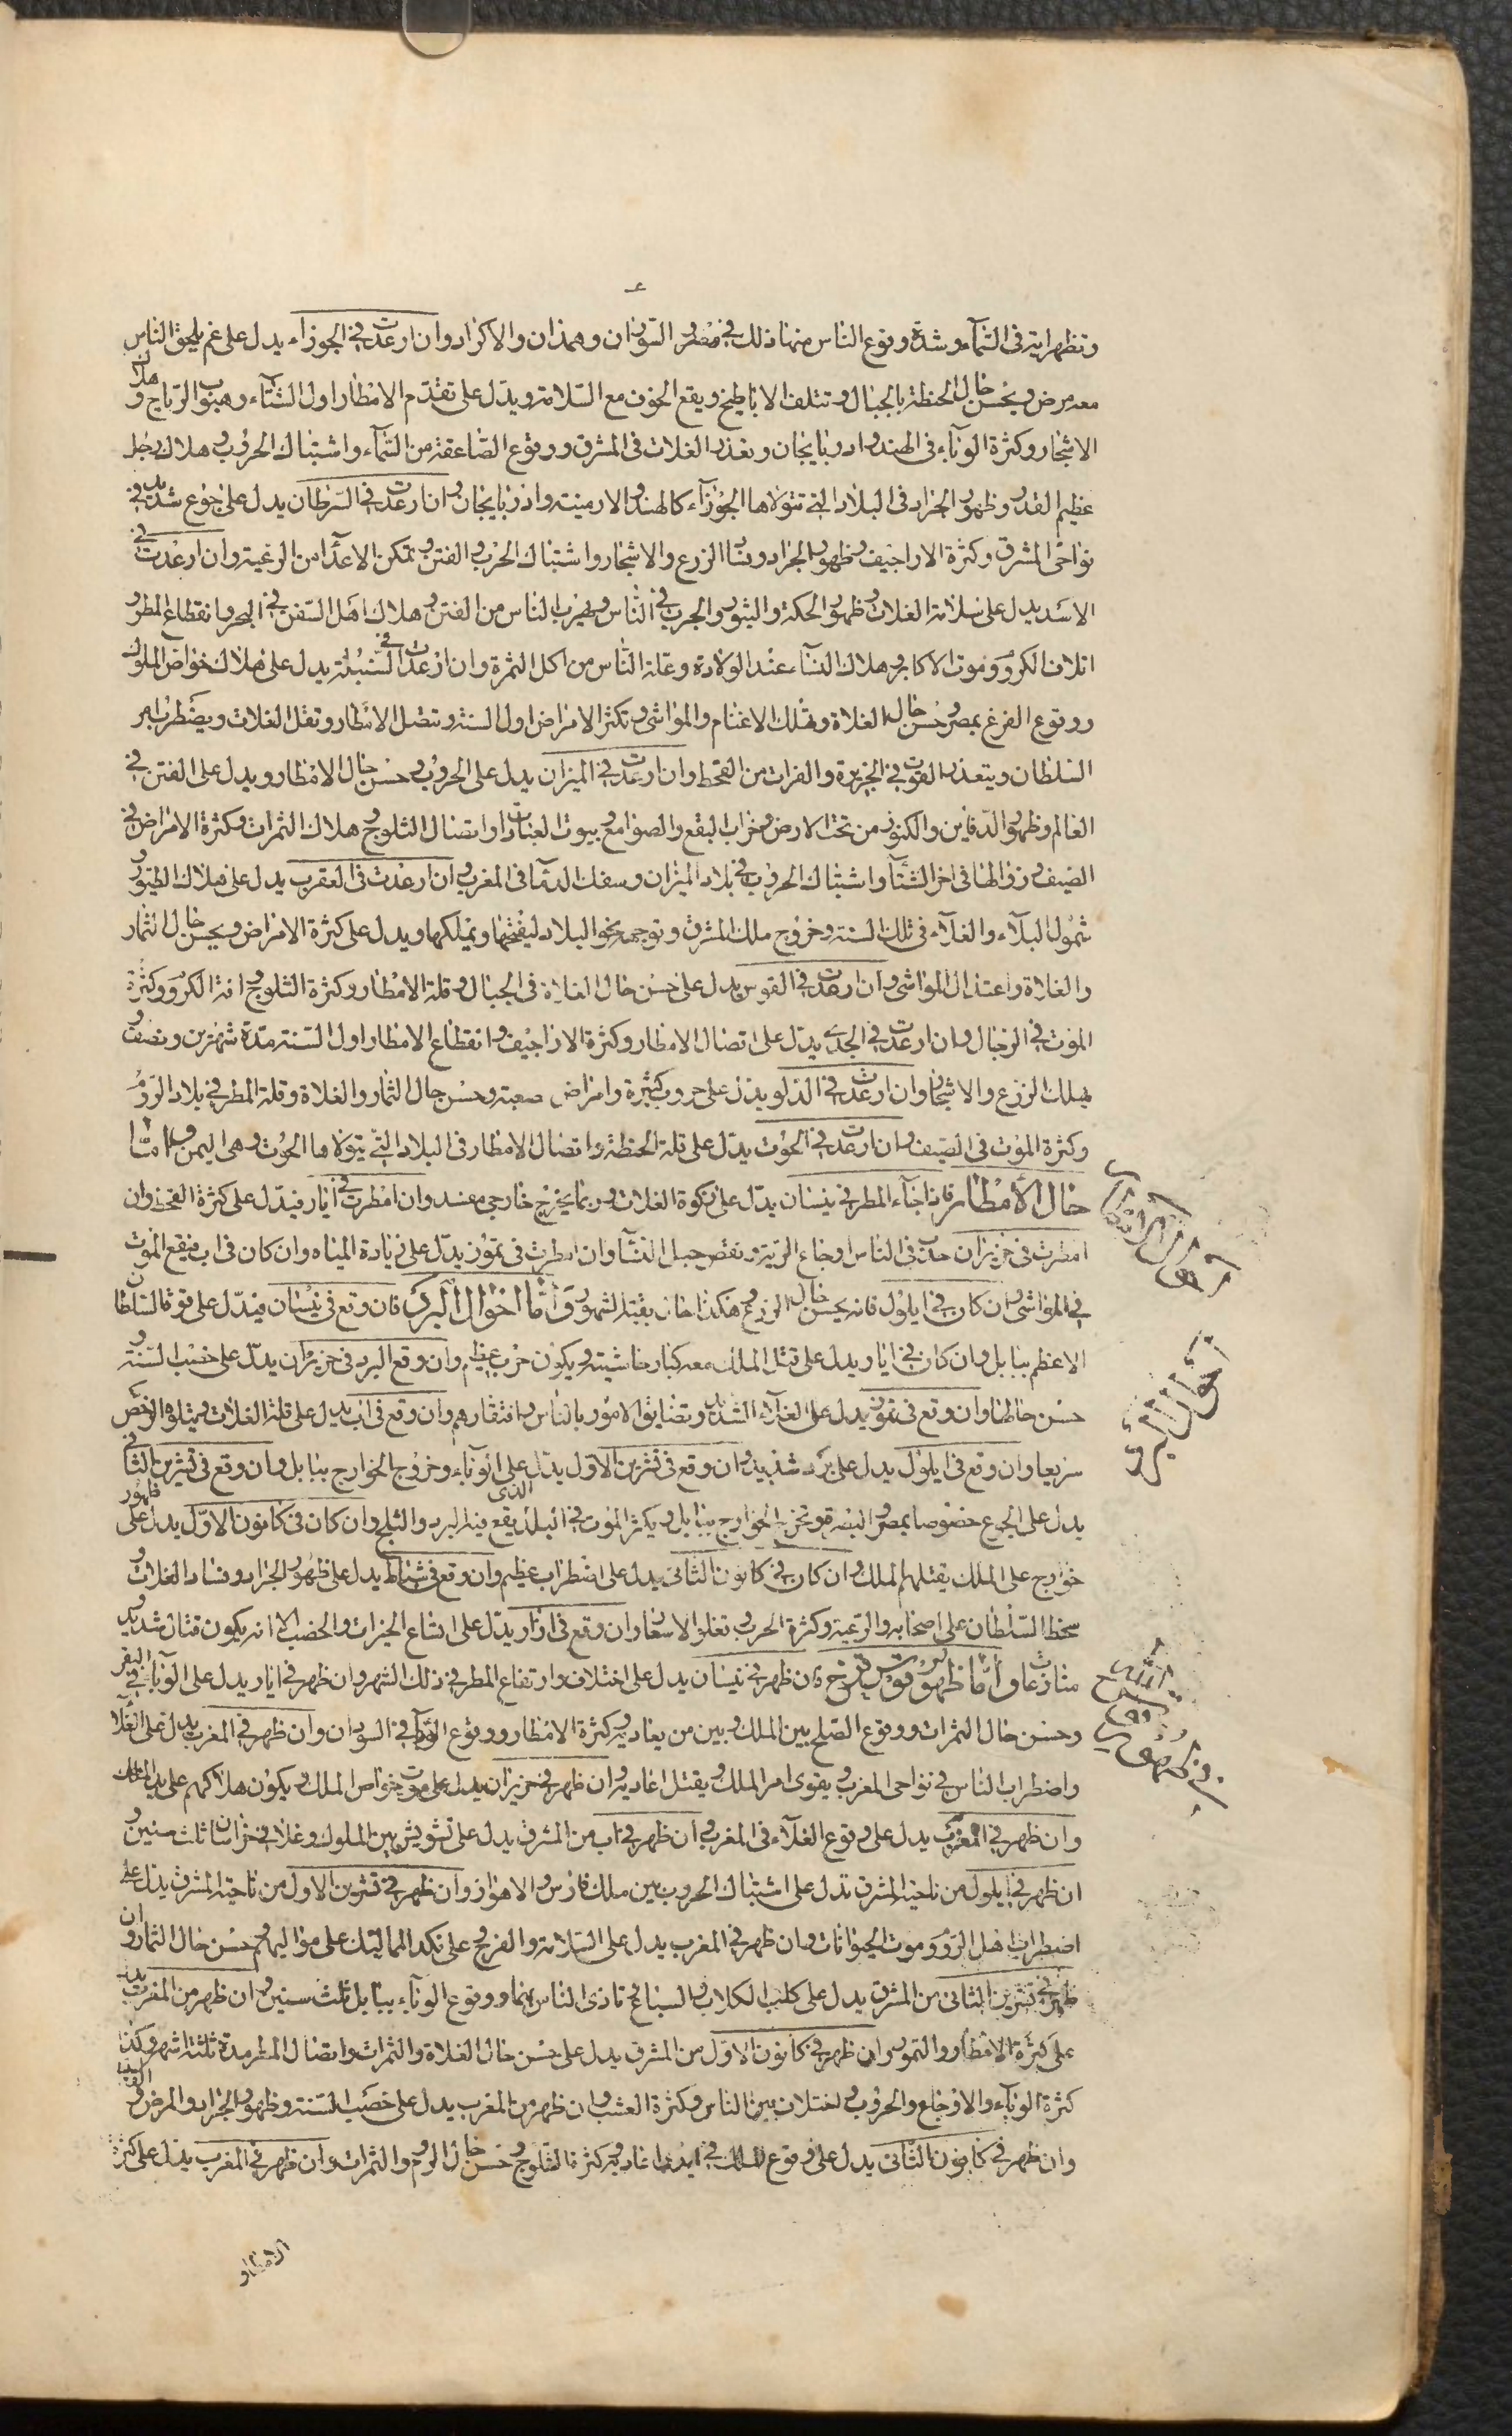 وتظهر اية فى السمآء وشدة وقوع الناس منها ذلك في مصر والسودان وهمذان والاكراد وان ارعدت في الجوزاء يدل على غم يلحق الناس
معه مرض ويحسن حال الحنطة بالجبال وتتلف الاباطيخ ويقع الخوف مع السلامة ويدل على تقدم الامطار اول الشتآء وهبوب الرياح وهلاك
الاشجار وكثرة الوبآء فى الهند واذربايجان وتعذر الغلات فى المشرق ووقوع الصاعقة من السمآء واشتباك الحروب وهلاك رجل
عظيم القدر وظهور الجراد فى البلاد التى تتولاها الجوزآء كالهند والارمنية واذربايجان وان ارعدت في السرطان يدل على جوع شديد في
نواحى المشرق وكثرة الاراجيف وظهور الجراد وفساد الزرع والاشجار واشتباك الحرب والفتن وتمكن الاعدآء من الرعية وان ارعدت في
الاسد يدل على سلامة الغلات وظهور الحكة والبثور والجرب في الناس وهرب الناس من الفتن وهلاك اهل السفن في البحر وانقطاع المطر و
اتلاف الكروم وموت الاكابر وهلاك النسآء عند الولادة وعلة الناس من اكل الثمرة وان ارعدت في السنبلة يدل على هلاك خواص الملوك
ووقوع الفزع بمصر وحسن حال الغلاة وتهلك الاغنام والمواشى وتكثر الامراض اول السنة وتتصل الامطار وتقل الغلات ويضطرب امر
السلطان ويتعذر القوت في الجزيرة والفرات من القحط وان ارعدت في الميزان يدل على الحروب وحسن حال الامطار ويدل على الفتن في
العالم وظهور الدفاين والكنوز من تحت الارض وخراب البقع والصوامع وبيوت العبادات واتصال الثلوج وهلاك الثمرات وكثرة الامراض في
الصيف وزوالها فى اخر الشتآء واشتباك الحروب في بلاد الميزان وسفك الدمآ فى المغرب وان ارعدت فى العقرب يدل على هلاك الطيور و
شمول البلآء والغلآء فى تلك السنة وخروج ملك المشرق وتوجهه نحو البلاد ليفتحها ويملكها ويدل على كثرة الامراض ويحسن حال الثمار
والغلاة واعتدال المواشى وان ارعدت في القوس يدل على حسن حال الغلاة فى الجبال وقلة الامطار وكثرة الثلوج وافة الكروم وكثرة
الموت في الرجال وان ارعدت في الجدى يدل على اتصال الامطار وكثرة الاراجيف وانقطاع الامطار اول السنة مدة شهرين ونصف و
يهلك الزرع والاشجار وان ارعدت في الدلو يدل على حروب كثيرة وامراض صعبة وحسن حال الثمار والغلاة وقلة المطر في بلاد الروم
وكثرة الموت فى الصيف وان ارعدت في الحوت يدل على قلة الحنطة واتصال الامطار فى البلاد التى يتولاها الحوت وهى اليمن واما
حال الأمطار فاذا جآء المطر في نيسان يدل على زكوة الغلات وربما يخرج خارجى مفسد وان امطرت في ايار فيدل على كثرة القحط وان
امطرت فى حزيران حدث فى الناس اوجاع الرية ونقص حبل النسآ وان امطرت فى تموز يدل على زيادة المياه وان كان فى اب فيقع الموت
في المواشى وان كان في ايلول فانه يحسن حال الزرع وهكذا حال بقية الشهور واما احوال البرد فان وقع فى نيسان فيدل على قوة السلطان
الاعظم ببابل وان كان في ايار ويدل على قتل الملك معه كبار حاشيته ويكون حرب عظيم وان وقع البرد فى حزيران يدل على خصب السنة و
حسن حالها وان وقع فى تموز يدل على الغلآء الشديد وتضايق الامور بالناس وافتقارهم وان وقع فى اب يدل على قلة الغلات ويتلوه الرخص
سريعا وان وقع فى ايلول يدل على برد شديد وان وقع فى تشرين الاول يدل على الوبآء وخروج الخوارج ببابل وان وقع فى تشرين الثانى
يدل على الجوع خصوصا بمصر والبصرة وتخرج الخوارج ببابل ويكثر الموت في البلد الذى يقع فيه البرد والثلج وان كان فى كانون الاول يدل على ظهور
خوارج على الملك يقتلهم الملك وان كان في كانون الثانى يدل على اضطراب عظيم وان وقع فى شباط يدل على ظهور الجراد وفساد الغلات و
سخط السلطان على اصحابه والرعية وكثرة الحرب وتغلو الاسعار وان وقع فى اذار يدل على اتساع الخيرات والخصب الا انه يكون قتال شديد و
منازعات واما ظهور قوس قزح فان ظهر في نيسان يدل على اختلاف وارتفاع المطر في ذلك الشهر وان ظهر في ايار يدل على الوبآ في البقر
وحسن حال الثمرات ووقوع الصلح بين الملك وبين من يعاديه وكثرة الامطار ووقوع الوبآ في السودان وان ظهر في المغرب يدل على الغلآ
واضطراب الناس في نواحى المغرب ويقوى امر الملك ويقتل اعاديه وان ظهر في حزيران يدل على موت خواص الملك ويكون هلاكهم على يد الملك
وان ظهر في المغرب يدل على وقوع الغلآء فى المغرب وان ظهر في اب من المشرق يدل على تشويش بين الملوك وغلآ في خراسان ثلث سنين و
ان ظهر في ايلول من ناحية المشرق تدل على اشتباك الحروب بين ملك فارس والاهواز وان ظهر في تشرين الاول من ناحية المشرق يدل على
اضطراب اهل الروم وموت الحيوانات وان ظهر في المغرب يدل على السلامة والفرح وعلى نكد المماليك على مواليهم وحسن حال الثمار وان
ظهر في تشرين الثانى من المشرق يدل على كلب الكلاب والسباع وتاذى الناس بها ووقوع الوبآء ببابل ثلث سنين وان ظهر من المغرب يدل
على كثرة الامطار والثمور وان ظهر في كانون الاول من المشرق يدل على حسن حال الغلاة والثمرات واتصال المطر مدة ثلثة اشهر وكذا
كثرة الوبآء والاوجاع والحروب واختلاف بين الناس وكثرة العشب وان ظهر من المغرب يدل على خصب السنة وظهور الجراد والمرض
وان ظهر في كانون الثانى يدل على وقوع الملك في ايدى اعاديه وكثرة الثلوج وحسن حال الروم والثمرات وان ظهر في المغرب يدل على كثرة
الامطار
احوال الامطار
احوال البرد
في ظهور قوس قزح